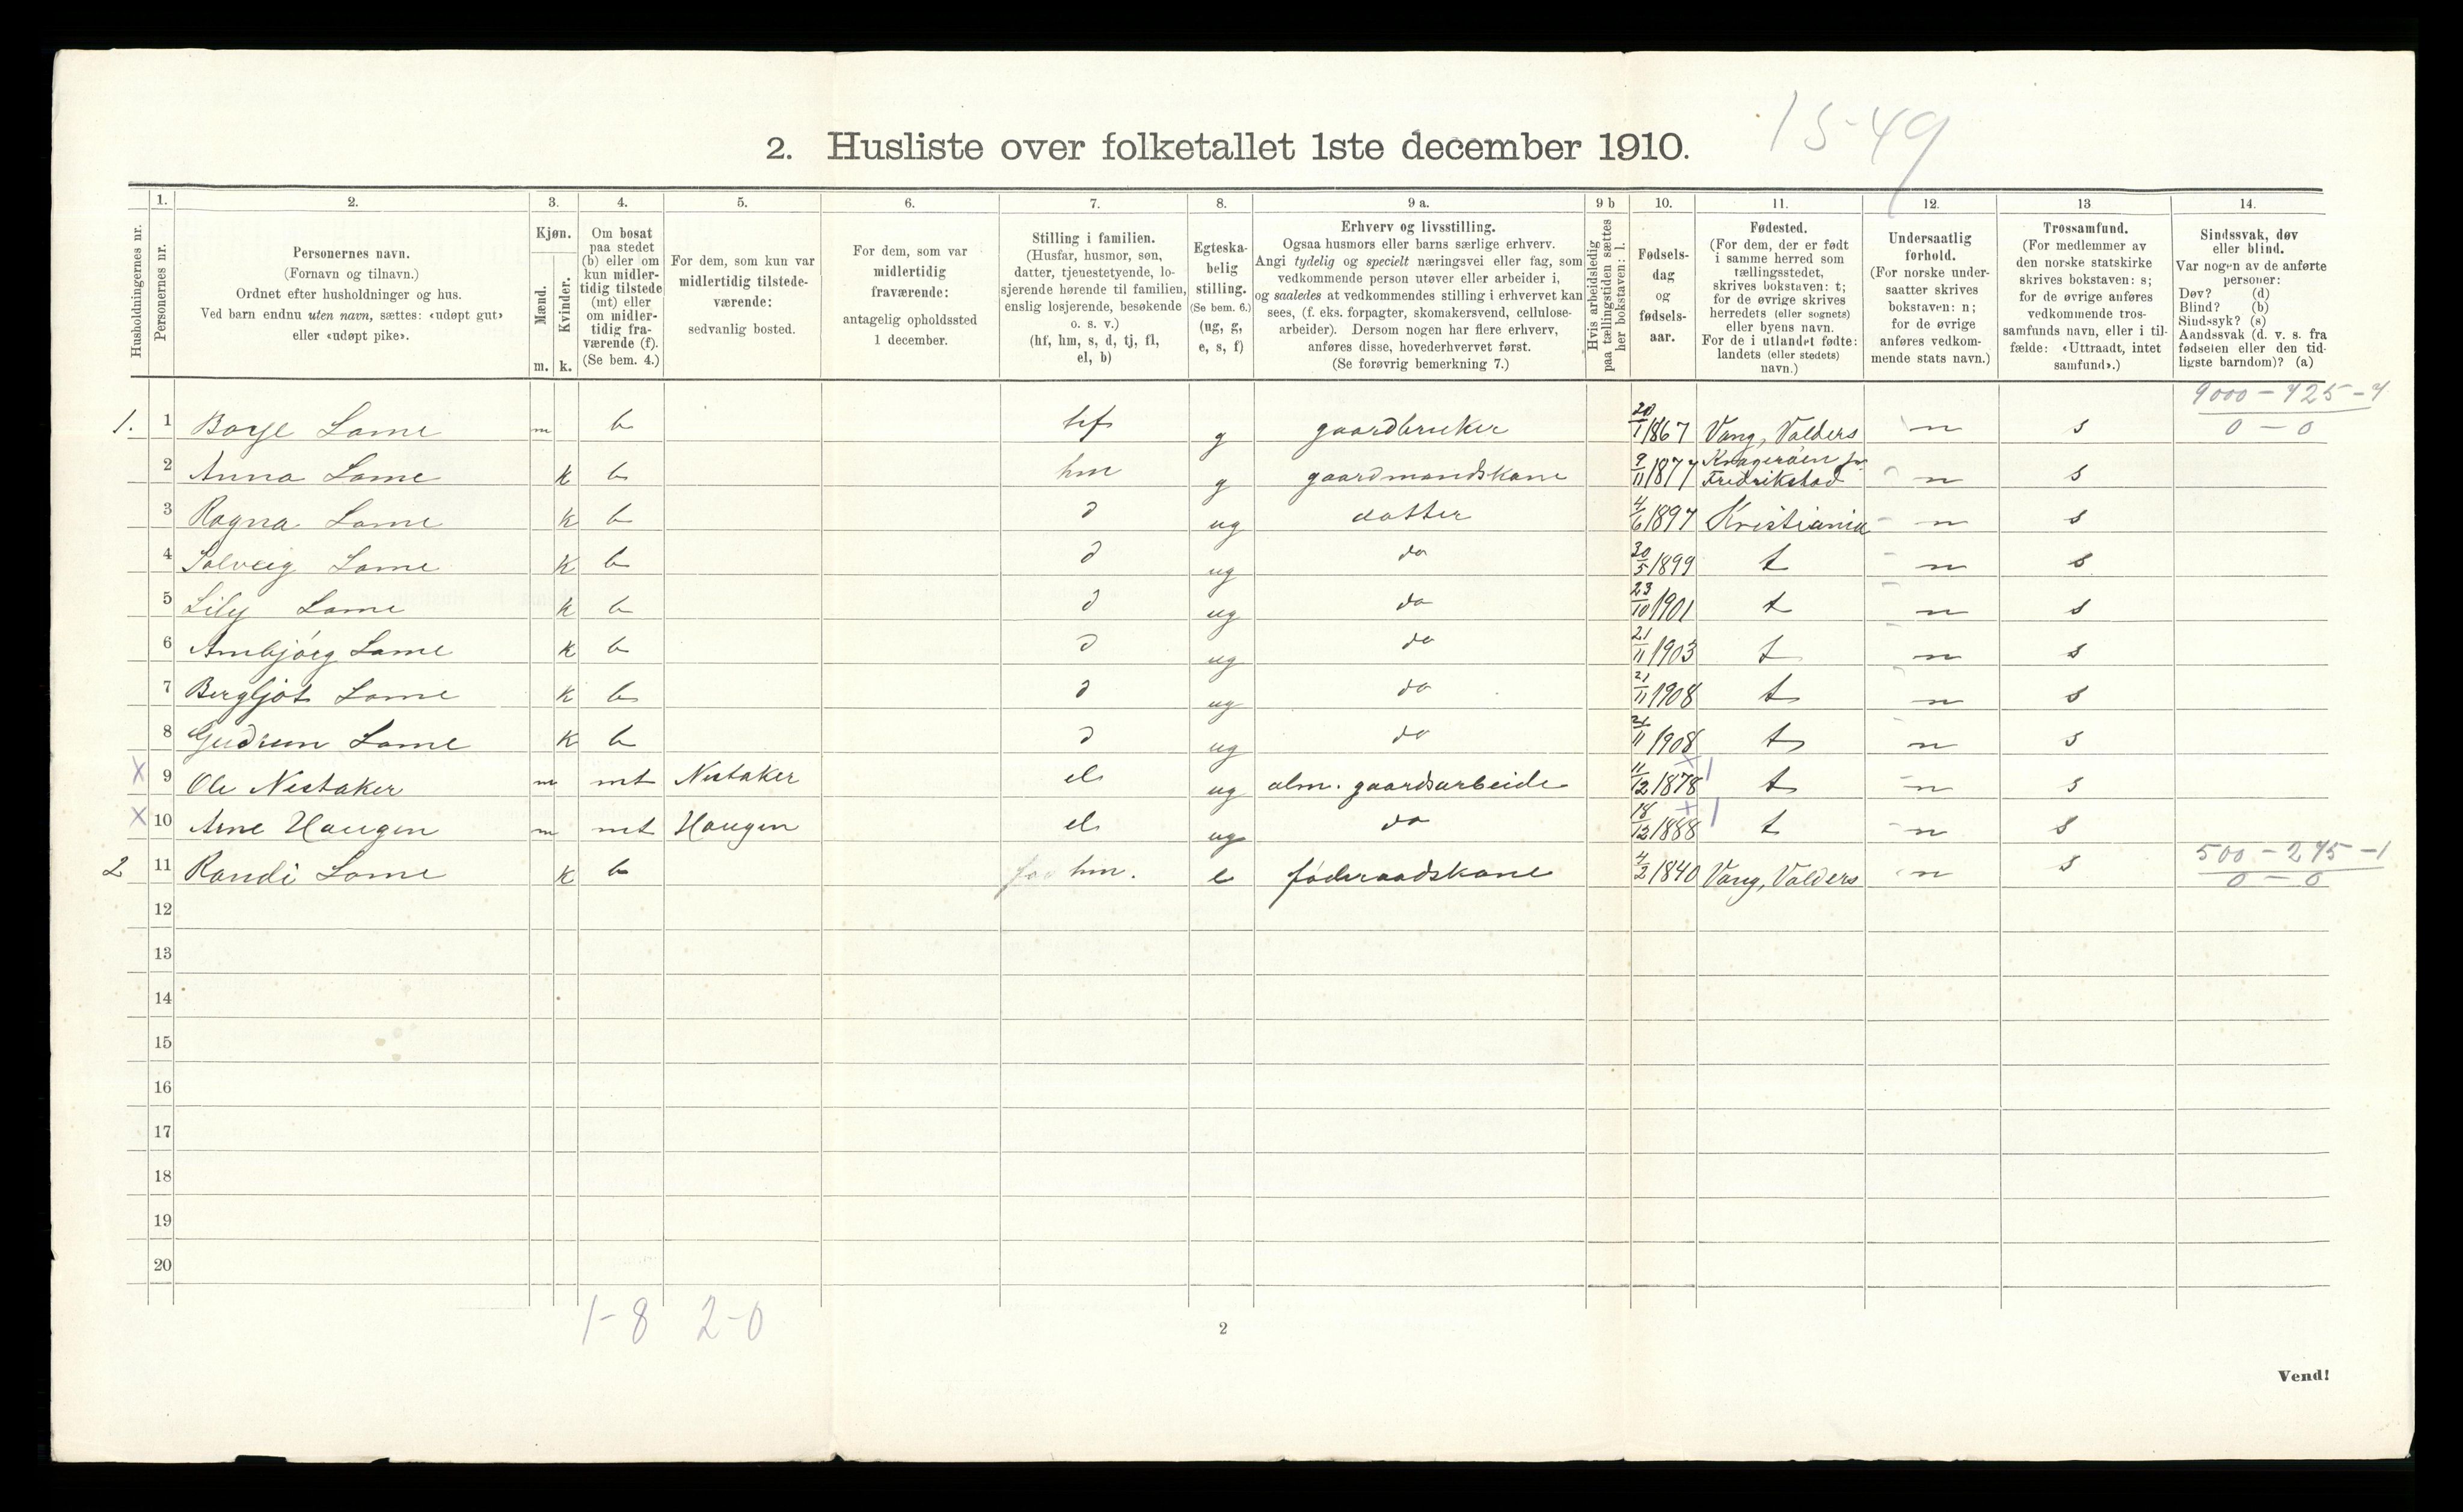 15-49
2. Husliste over folketallet 1ste december 1910.
Husholdningernes nr.
1.
Personernes nr.
2.
Personernes navn.
(Fornavn og tilnavn.)
Ordnet efter husholdninger og hus.
Ved barn endnu uten navn, sættes: «udøpt gut»
eller «udøpt pike».
3.
Kjøn.
Mænd.
Kvinder.
m. k.
4.
Om bosat
paa stedet
(b) eller om
kun midler-
tidig tilstede
(mt) eller
om midler-
tidig fra-
værende (f).
(Se bem. 4.)
5.
For dem, som kun var
midlertidig tilstede-
værende:
sedvanlig bosted.
6.
For dem, som var
midlertidig
fraværende:
antagelig opholdssted
1 december.
7.
Stilling i familien.
(Husfar, husmor, søn,
datter, tjenestetyende, lo-
sjerende hørende til familien,
enslig losjerende, besøkende
o. s. v.)
(hf, hm, s, d, tj, fl,
el, b)
8.
Egteska-
belig
stilling.
(Se bem. 6.)
(ug, g,
e, s, f)
9 a.
Erhverv og livsstilling.
Ogsaa husmors eller barns særlige erhverv.
Angi tydelig og specielt næringsvei eller fag, som
vedkommende person utøver eller arbeider i,
og saaledes at vedkommendes stilling i erhvervet kan
sees, (f. eks. forpagter, skomakersvend, cellulose-
arbeider). Dersom nogen har flere erhverv,
anføres disse, hovederhvervet først.
(Se forøvrig bemerkning 7.)
9 b
Hvis arbeidsledig
paa tællingstiden sættes
her bokstaven: l.
10.
Fødsels-
dag
og
fødsels-
aar.
11.
Fødested.
(For dem, der er født
i samme herred som
tællingsstedet,
skrives bokstaven: t;
for de øvrige skrives
herredets (eller sognets)
eller byens navn.
For de i utlandet fødte:
landets (eller stedets)
navn.)
12.
Undersaatlig
forhold.
(For norske under-
saatter skrives
bokstaven: n;
for de øvrige
anføres vedkom-
mende stats navn.)
13
Trossamfund.
(For medlemmer av
den norske statskirke
skrives bokstaven: s;
for de øvrige anføres
vedkommende tros-
samfunds navn, eller i til-
fælde: «Uttraadt, intet
samfund».)
14.
Sindssvak, døv
eller blind.
Var nogen av de anførte
personer:
Døv? (d)
Blind? (b)
Sindssyk? (s)
Aandssvak (d. v. s. fra
fødselen eller den tid-
ligste barndom)? (a)
9000 - 725 - 7
1. 1 Boye Lome m b hf g gaardbruker 20/1 1867 Vang, Valders n s 0 - 0
2 Anna Lome k b hm g gaardmandskone 9/11 1877 Kragerøen pr Fredrikstad n s
3 Ragna Lome k b d ug datter 4/6 1897 Kristiania n s
4 Solveig Lome k b d ug do 30/5 1899 t n s
5 Lily Lome k b d ug do 23/10 1901 t n s
6 Arnbjörg Lome k b d ug do 21/11 1903 t n s
7 Bergljot Lome k b d ug do 21/11 1908 t n s
8 Gudrun Lome k b d ug do 21/11 1908 t n s
X 9 Ole Nestaker m mt Nestaker el ug alm. gaardsarbeide 11/12 1878 t n s
X 10 Arne Haugen m mt Haugen el ug do 18/12 1888 t n s
500 - 275 - 1
2 11 Randi Lome k b hm. e föderaadskone 4/2 1840 Vang, Valders n s 0 - 0
12
13
14
15
16
17
18
19
20
1-8 2-0
2
Vend!